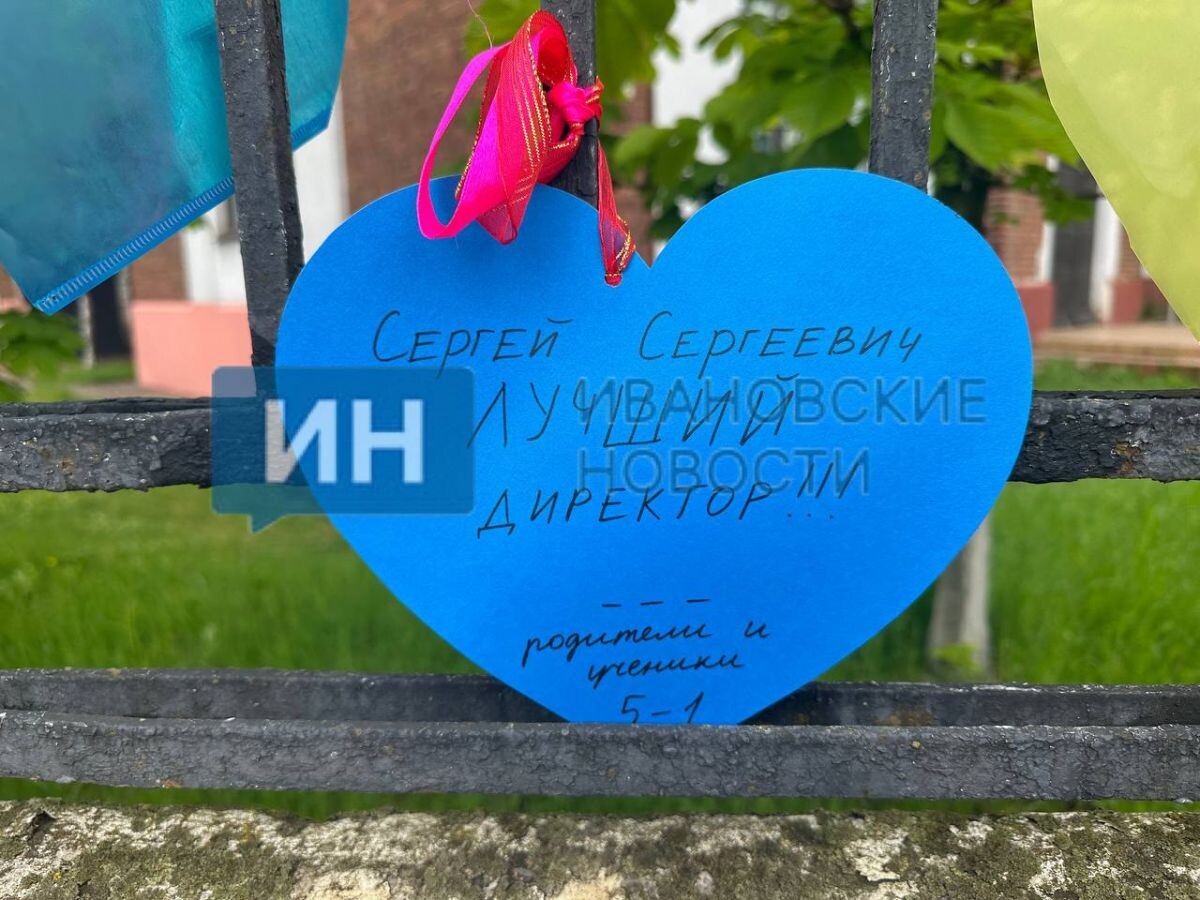 Сергей Сергеевич
ЛУЧШИЙ
ДИРЕКТОР!!!
родители и
ученики
5-1
ИН
ИВАНОВСКИЕ
НОВОСТИ